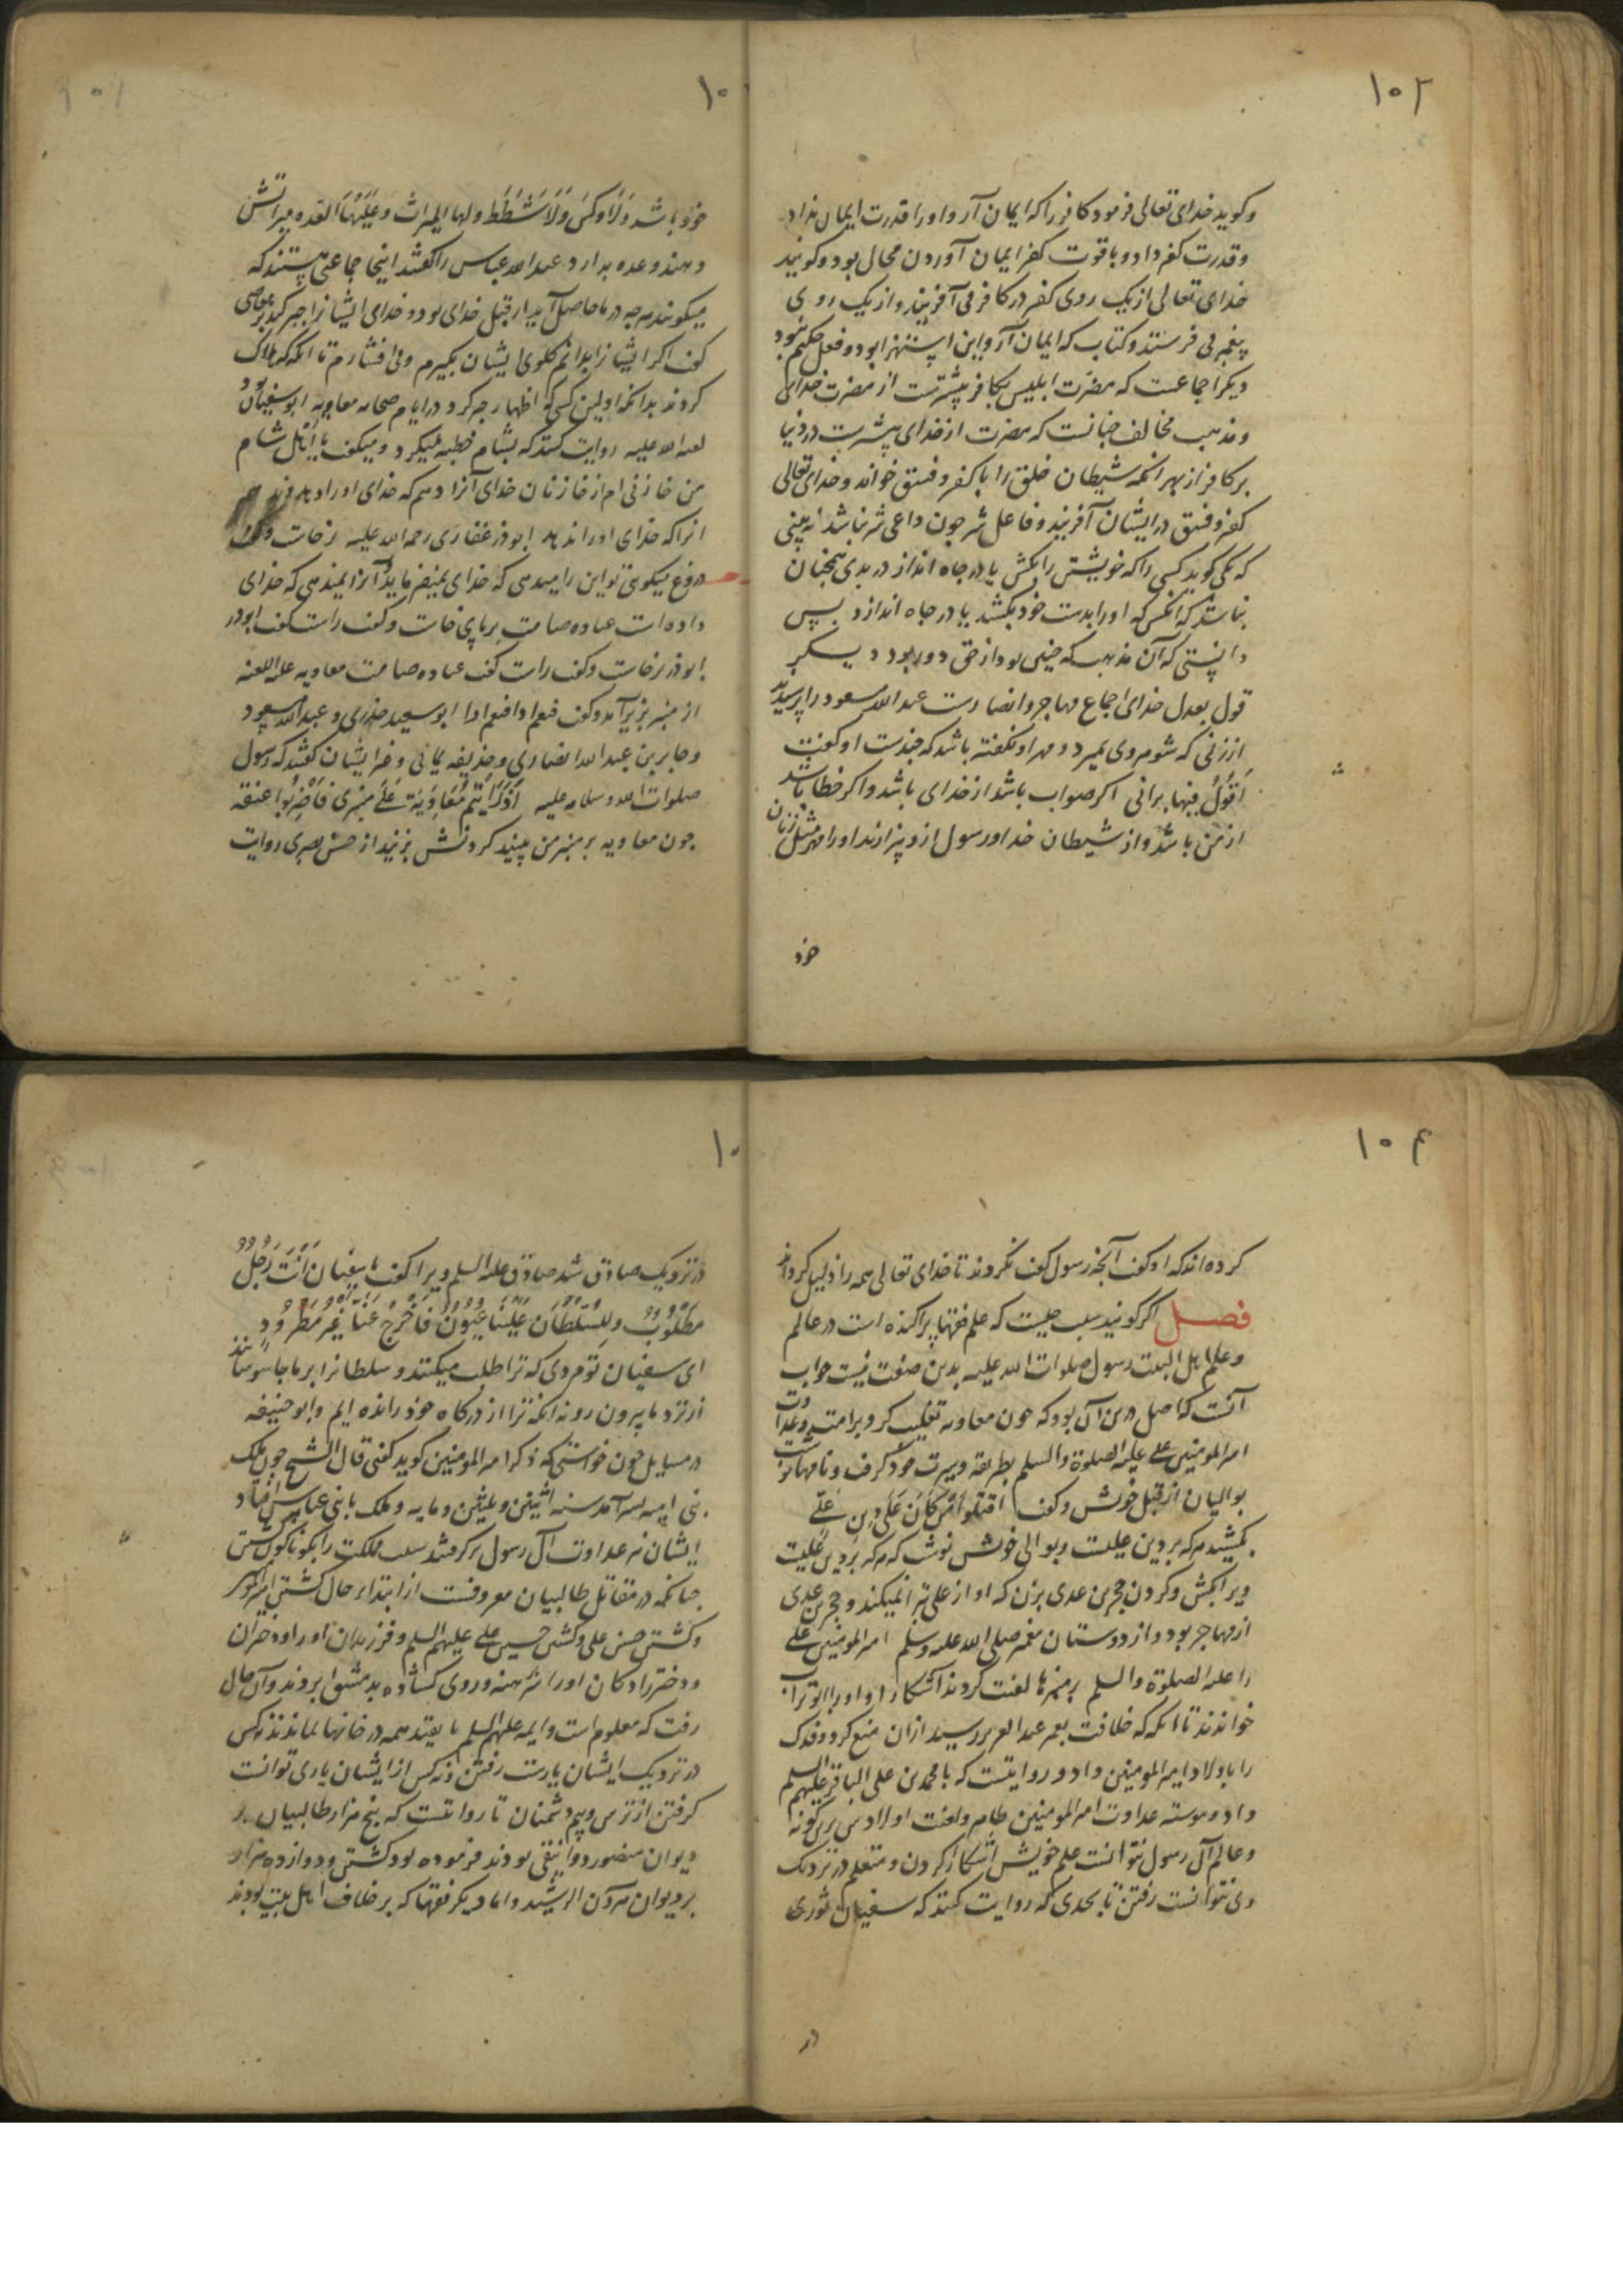 ۱۰۲
وکوید خدای تعالی فرمود کافر را که ایمان آر و او را قدرت ایمان نداد
وقدرت کفر داد و با قوت کفر ایمان آوردن محال بود وکویند
خدای تعالی از یک روی کفر در کافر می آفریند و از یک روی
پیغمبر می فرستد و کتاب که ایمان آر و این استهزا بود و فعل حکیم نبود
دیکر اجماعست که مضرت ابلیس بکافر بیشترست از مضرت خدای
ومذهب مخالف چنانست که مضرت از خدای بیشترست در دنیا
بر کافر از بهر انکه شیطان خلق را با کفر و فسق خواند و خدای تعالی
کفر و فسق در ایشان آفریند و فاعل شر چون داعی شر نباشد نه بینی
که یکی کوید کسی را که خویشتن را بکش یا در چاه انداز در بدی همچنان
نباشد که انکس که او را بدست خود بکشد یا در چاه اندازد پس
دانستی که آن مذهب که چنین بود از حق دور بود دیکر
قول بعدل خدای اجماع مهاجر و انصارست عبد الله مسعود را پرسیدند
از زنی که شوهر وی بمیرد و مهر او نکفته باشد که چندست او کفت
اَقُولُ فیها برائی اکر صواب باشد از خدای باشد و اکر خطا باشد
از من باشد و از شیطان خدا و رسول ازو بیزارند او را مهر مثل زنان
خود
خود باشد وَلَا وَکسَ وَلَا شَطَطَ ولها المیراث وعَلَیْهَا العده میراثش
دهند و عده بدارد عبد الله عباس را کفتند اینجا جماعتی هستند که
میکویند هرچه در ما حاصل آید از قبل خدای بود و خدای ایشانرا جبر کند بر معاصی
کفت اکر ایشانرا بدانم کلوی ایشان بکیرم و می افشارم تا انکه که هلاک
کردند بدانکه اولین کسی که اظهار جبر کرد در ایام صحابه معاویه ابو سفیان
لعنه الله علیه روایت کنند که بشام خطبه میکرد و میکفت یا اَهْلَ شام
من خازنی ام از خازنان خدای آنرا دهم که خدای او را دهد و ندهم
انرا که خدای او را ندهد ابوذر غفاری رحمه الله علیه برخاست و کفت
دروغ میکوئی تو این را میدهی که خدای بمنع فرماید و آنرا نمیدهی که خدای
داده است عباده صامت برپای خاست و کفت راست کفت ابوذر
ابوذر برخاست و کفت راست کفت عباده صامت معاویه علیه اللعنه
از منبر بزیر آمد و کفت فنعم اذا فنعم اذا ابو سعید خدری و عبد الله مسعود
وجابر بن عبد الله انصاری و حذیفه یمانی و غیر ایشان کفتند که رسول
صلوات الله وسلامه علیه اِذَا رَاَیْتُم مُعَاوِیَةَ عَلَی مِنْبَرِی فَاضْرِبُوا عنقه
چون معاویه بر منبر من ببینید کردنش بزنید از حسن بصری روایت
۱۰۴
کرده اند که او کفت آنچه رسول کفت نکردند تا خدای تعالی همه را ذلیل کرداند
فصل اکر کویند سبب چیست که علم فقها پراکنده است در عالم
وعلم اهل البیت رسول صلوات الله علیه بدین صفت نیست جواب
آنست که اصل درین آن بود که چون معاویه تغلب کرد برامت و عداوت
امیر المومنین علی علیه الصلوة والسلم بطریقه و سیرت خود کرفت و نامها نوشت
بوالیان از قبل خویش و کفت اقتلوا مَنْ کَانَ عَلَی دِینِ عَلِیٍّ
بکشید هر که بر دین علیست و بوالی خویش نوشت که هر که بر دین علیست
ویرا بکش و کردن حجر بن عدی بزن که او از علی تبرا نمیکند و حجر بن عدی
از مهاجر بود و از دوستان پیغمبر صلی الله علیه وسلم امیر المومنین علی
را علیه الصلوة والسلم بر منبرها لعنت کردند آشکارا و او را ابو تراب
خواندند تا انکه که خلافت بعمر عبد العزیز رسید از ان منع کرد و فدک
را باولاد امیر المومنین داد و روایتست که با محمد بن علی الباقر علیهم السلم
داد و پیوسته عداوت امیر المومنین ظاهر و لعنت اولادش برین کونه
وعالم آل رسول نتوانست علم خویش آشکارا کردن و متعلم در نزدیک
وی نتوانست رفتن تا بحدی که روایت کنند که سفیان ثوری
در
در نزدیک صادق شد صادق علیه السلم ویرا کفت یا سفیان اَنْتَ رَجُلٌ
مَطْلُوبٌ وللسُلْطَان عَلَیْنا عُیُونٌ فَاخْرُجْ عَنّا غَیْرَ مَطْرُودٍ
ای سفیان تو مردی که ترا طلب میکنند و سلطانرا بر ما جاسوسانند
از نزد ما بیرون رو نه انکه ترا از درکاه خود رانده ایم و ابو حنیفه
در مسایل چون خواستی که ذکر امیر المومنین کوید کفتی قال الشیخ چون ملک
بنی امیه بسر آمد سنه اثنین و ثلثین و مایه و ملک با بنی عباس افتاد
ایشان نیز عداوت آل رسول برکرفتند سبب مملکت را بکوناکون کشتن
چنانکه در مقاتل طالبیان معروفست از ابتداء حال کشتن امیر المومنین
وکشتن حسن علی وکشتن حسین علی علیهم السلم و فرزندان او را و دختران
ودختر زادکان او را برهنه و روی کشاده بدمشق بردند و آن حال
رفت که معلوم است و ایمه علیهم السلم با تقیه همه در خانها بماندند نه کس
در نزدیک ایشان یارست رفتن و نه کس از ایشان یاری توانست
کرفتن از ترس و بیم دشمنان تا روایتست که پنج هزار طالبیان بر
دیوان منصور دوانیقی بودند فرموده بود کشتن و دوازده هزار
بر دیوان هرون الرشید و اما دیکر فقها که بر خلاف اهل بیت بودند